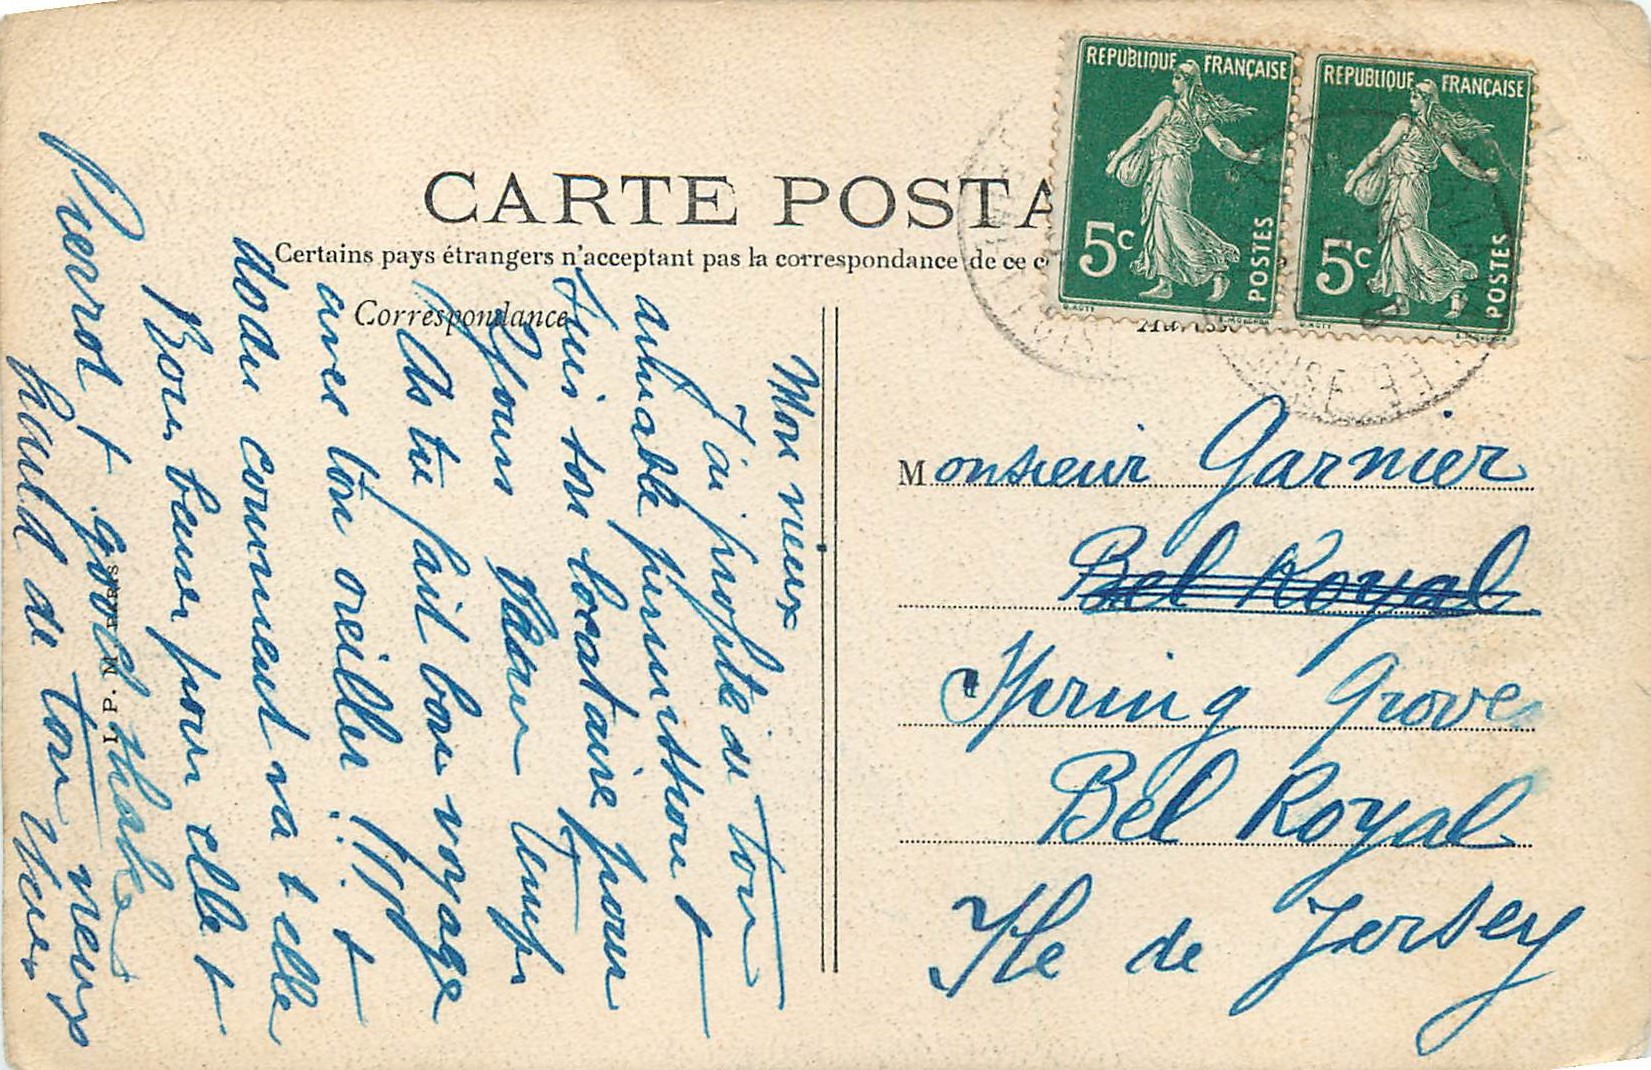 CARTE POSTA
Certains pays étrangers n'acceptant pas la correspondance de ce c
Correspondance
REPUBLIQUE FRANÇAISE
5c
POSTES
REPUBLIQUE FRANÇAISE
5c
POSTES
Mon vieux
J'ai profité de ton
aimable permission
suis ton locataire pour
jours beau temps
As tu fait bon voyage
avec ton oreiller !!!
dodu comment va t elle
Bons baisers pour elle
Pierrot
ton vieux
I. P. M. PARIS
Monsieur Garnier
Bel Royal
Spring Grove
Bel Royal
Ile de Jersey